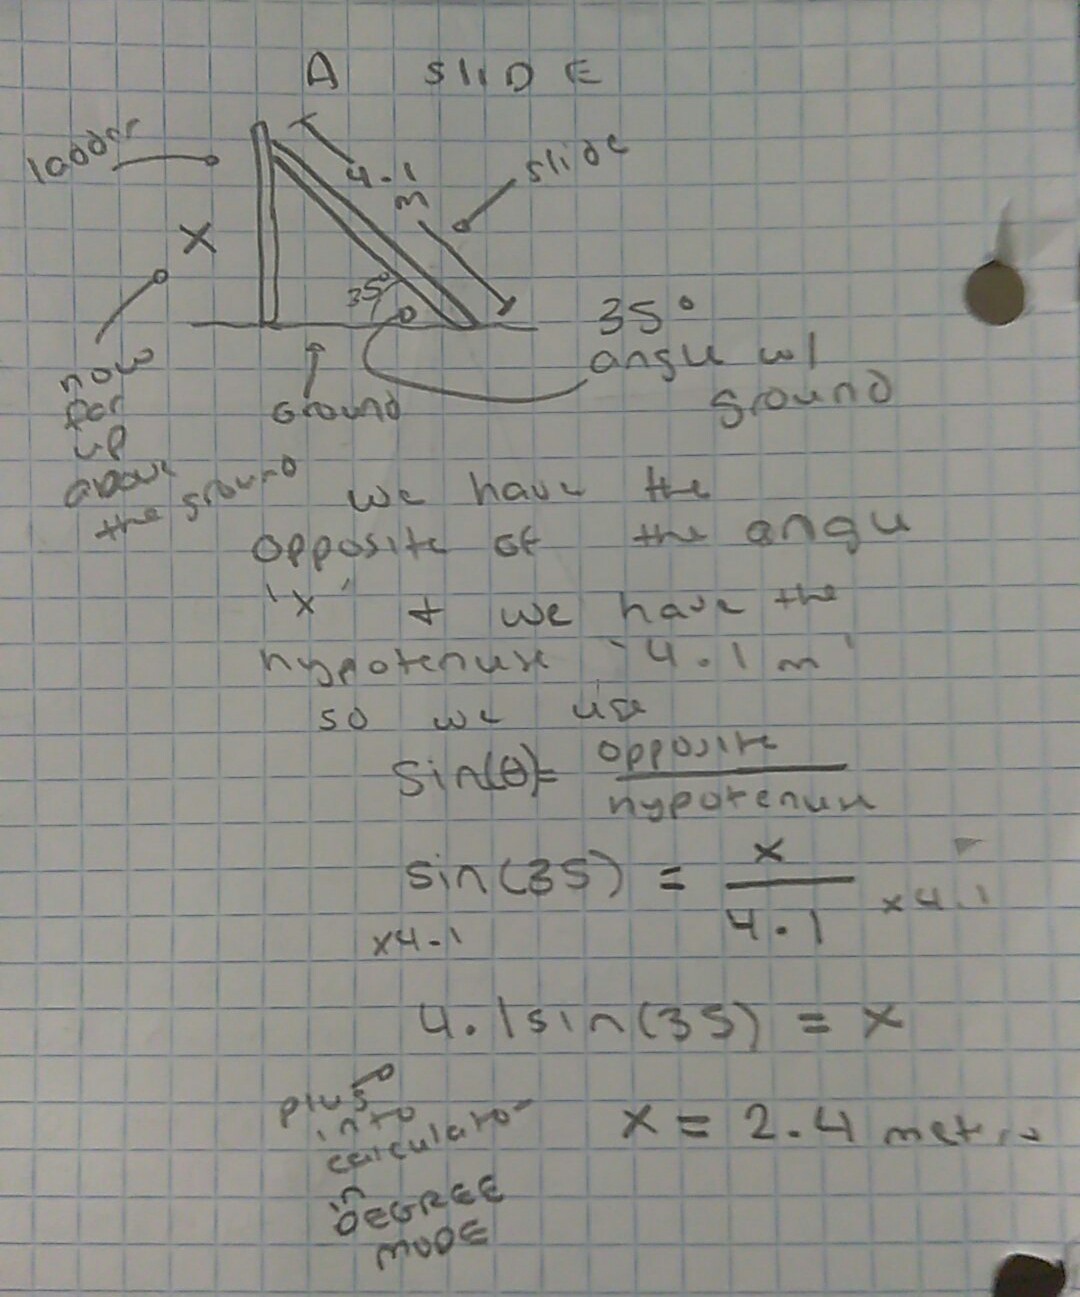 A SLIDE
ladder
4.1
m
slide
x
35°
35°
angle w/
ground
how
far
up
above
the ground
Ground
we have the
opposite of the angle
'x' & we have the
hypotenuse '4.1m'
so we use
sin(θ)= opposite
hypotenuse
sin(35) = x
4.1
x4.1
x4.1
4.1sin(35) = x
plug
into
calculator
in
DEGREE
MODE
x = 2.4 metres